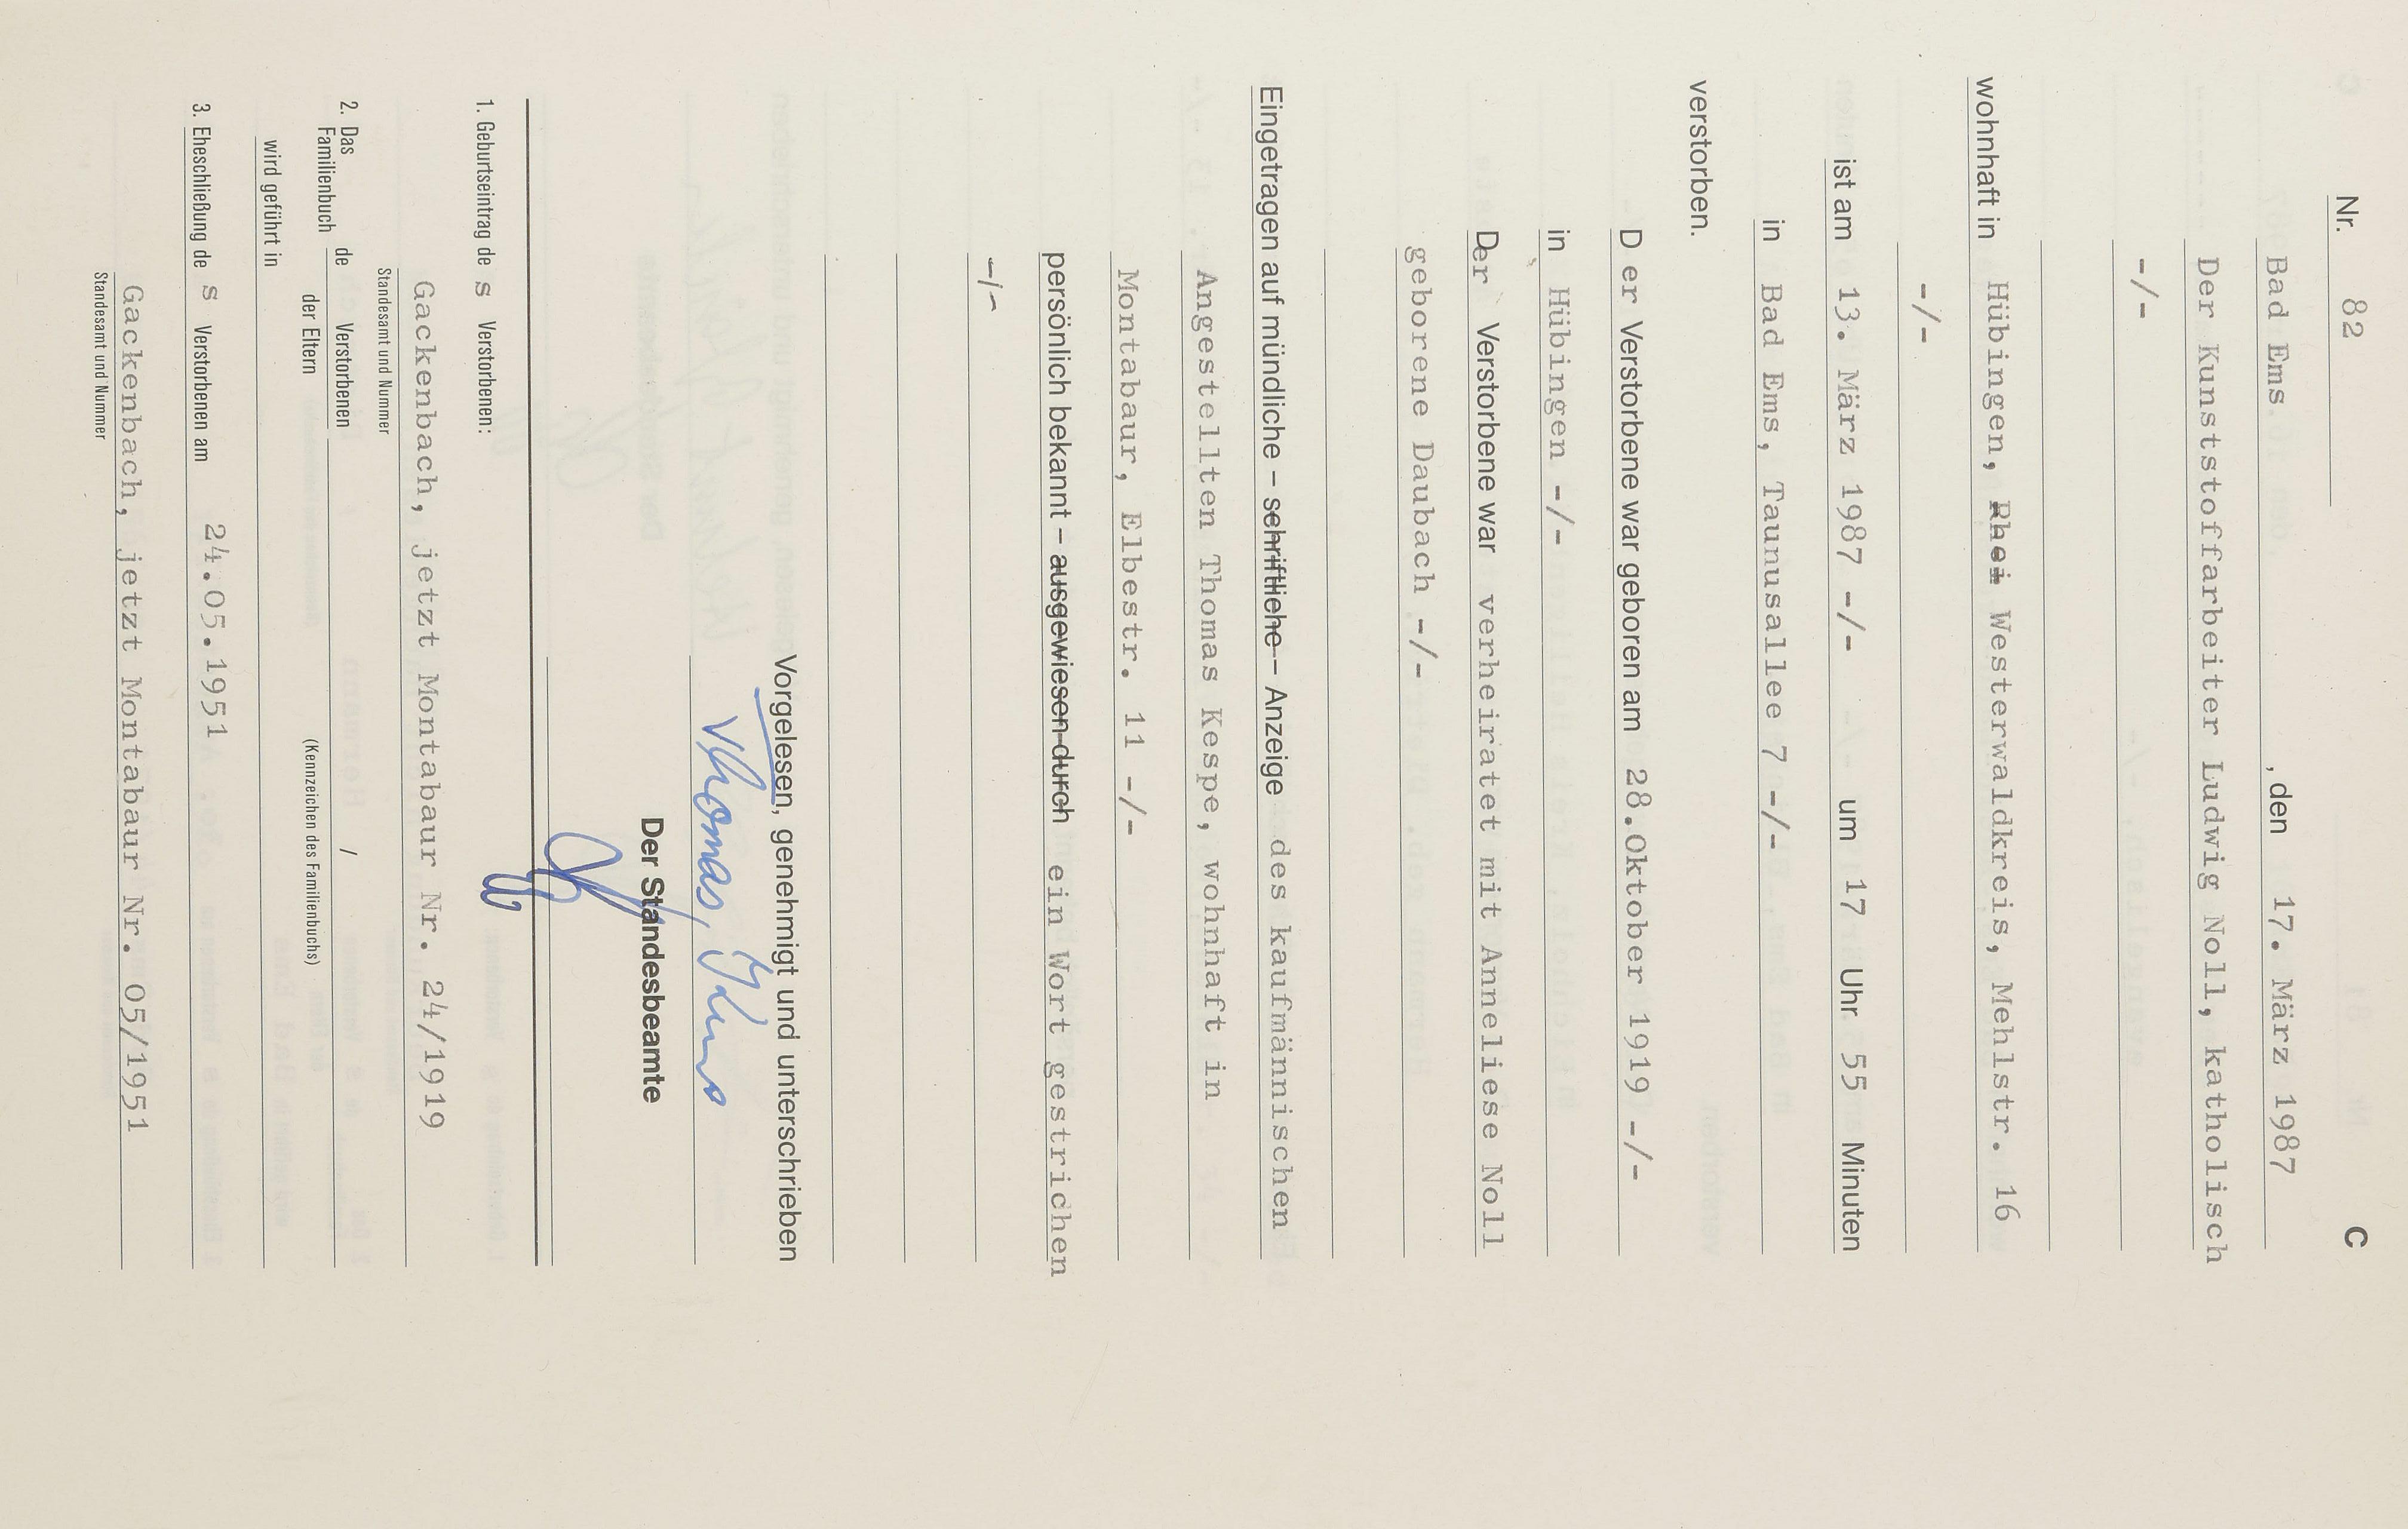 C
Nr. 82
Bad Ems, den 17. März 1987
Der Kunststoffarbeiter Ludwig Noll, katholisch
-/-
wohnhaft in Hübingen, Rhei Westerwaldkreis, Mehlstr. 16
-/-
ist am 13. März 1987 -/- um 17 Uhr 55 Minuten
in Bad Ems, Taunusallee 7 -/-
verstorben.
D er Verstorbene war geboren am 28.Oktober 1919 -/-
in Hübingen -/-
Der Verstorbene war verheiratet mit Anneliese Noll
geborene Daubach -/-
Eingetragen auf mündliche – schriftliche – Anzeige des kaufmännischen
Angestellten Thomas Kespe, wohnhaft in
Montabaur, Elbestr. 11 -/-
persönlich bekannt – ausgewiesen durch ein Wort gestrichen
-/-
Vorgelesen, genehmigt und unterschrieben
Thomas,
Der Standesbeamte
1. Geburtseintrag de s Verstorbenen:
Gackenbach, jetzt Montabaur Nr. 24/1919
Standesamt und Nummer
2. Das Familienbuch de Verstorbenen /
der Eltern (Kennzeichen des Familienbuchs)
wird geführt in
3. Eheschließung de s Verstorbenen am 24.05.1951
Gackenbach, jetzt Montabaur Nr. 05/1951
Standesamt und Nummer